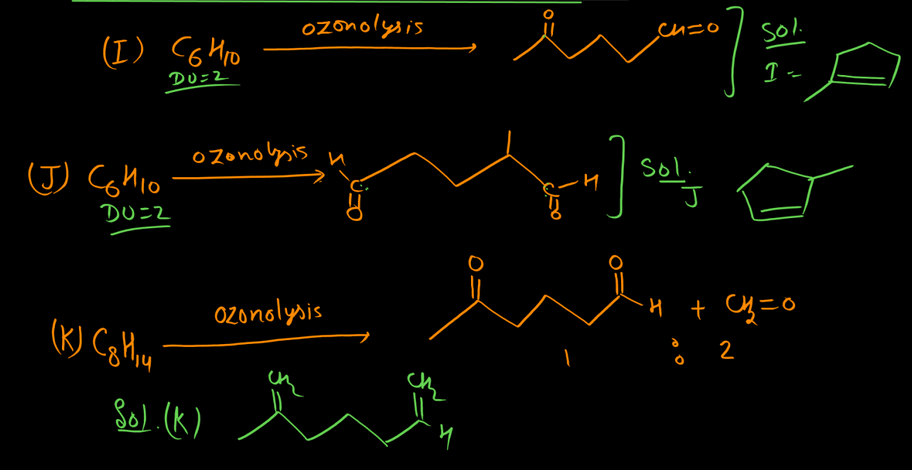 (I) C6H10 ozonolysis O CH=O Sol.
DU=2 I =
(J) C6H10 ozonolysis H C O C H O Sol. J
DU=2
(K) C8H14 ozonolysis O O H + CH2=O
1 : 2
Sol. (K) CH2 CH2 H